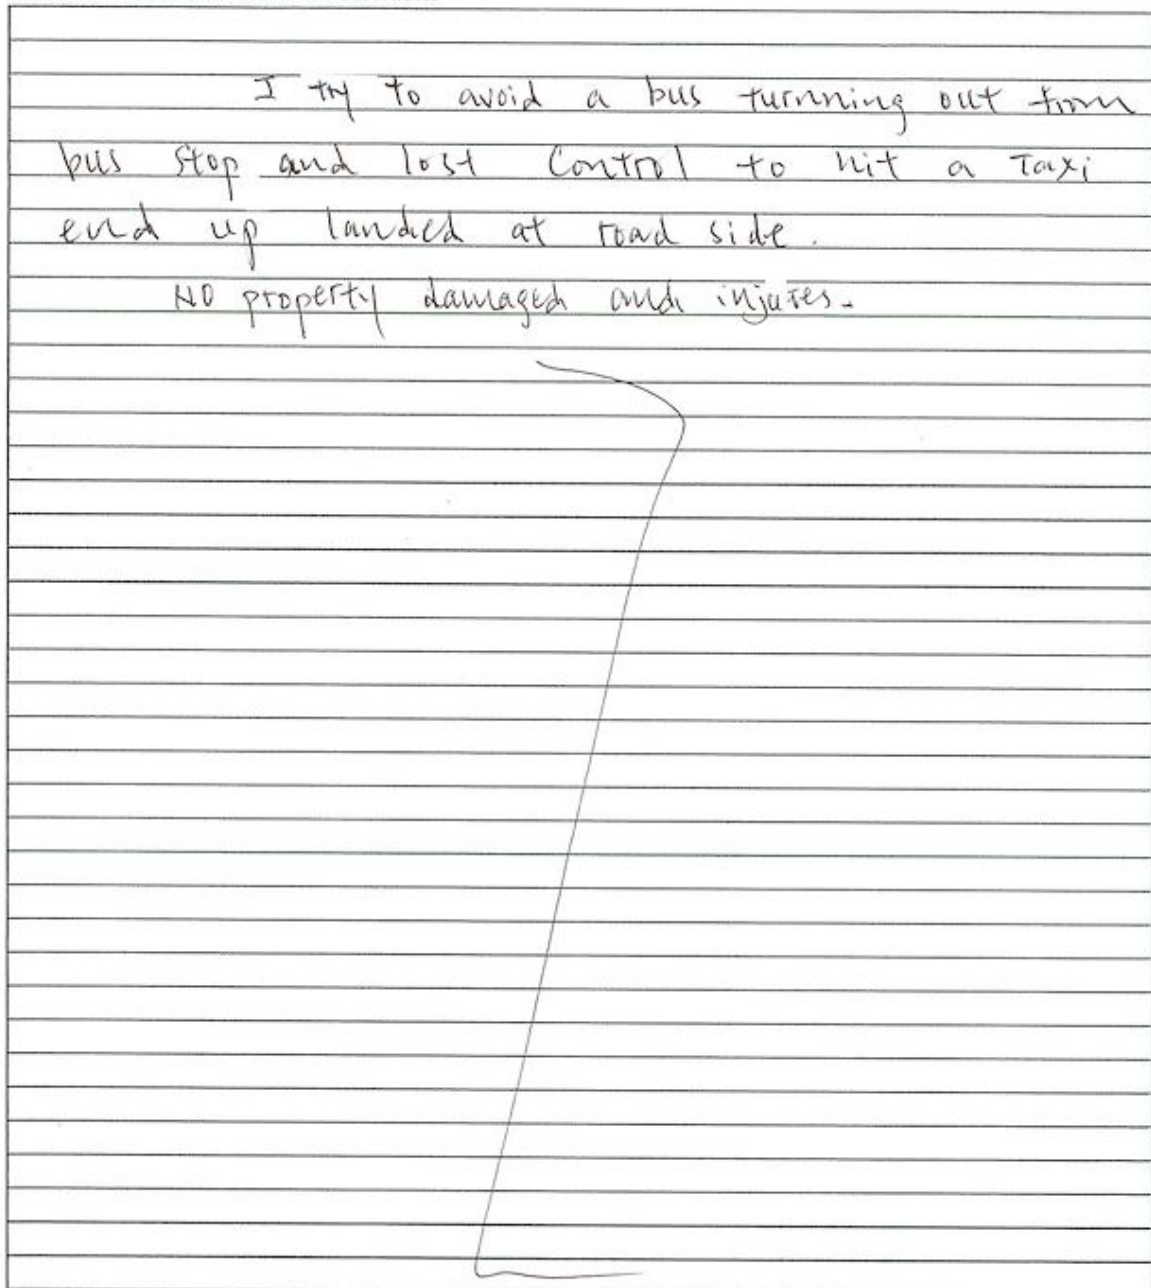 I try to avoid a bus turnning out from
bus stop and lost control to hit a Taxi
end up landed at road side.
NO property damaged and injures.